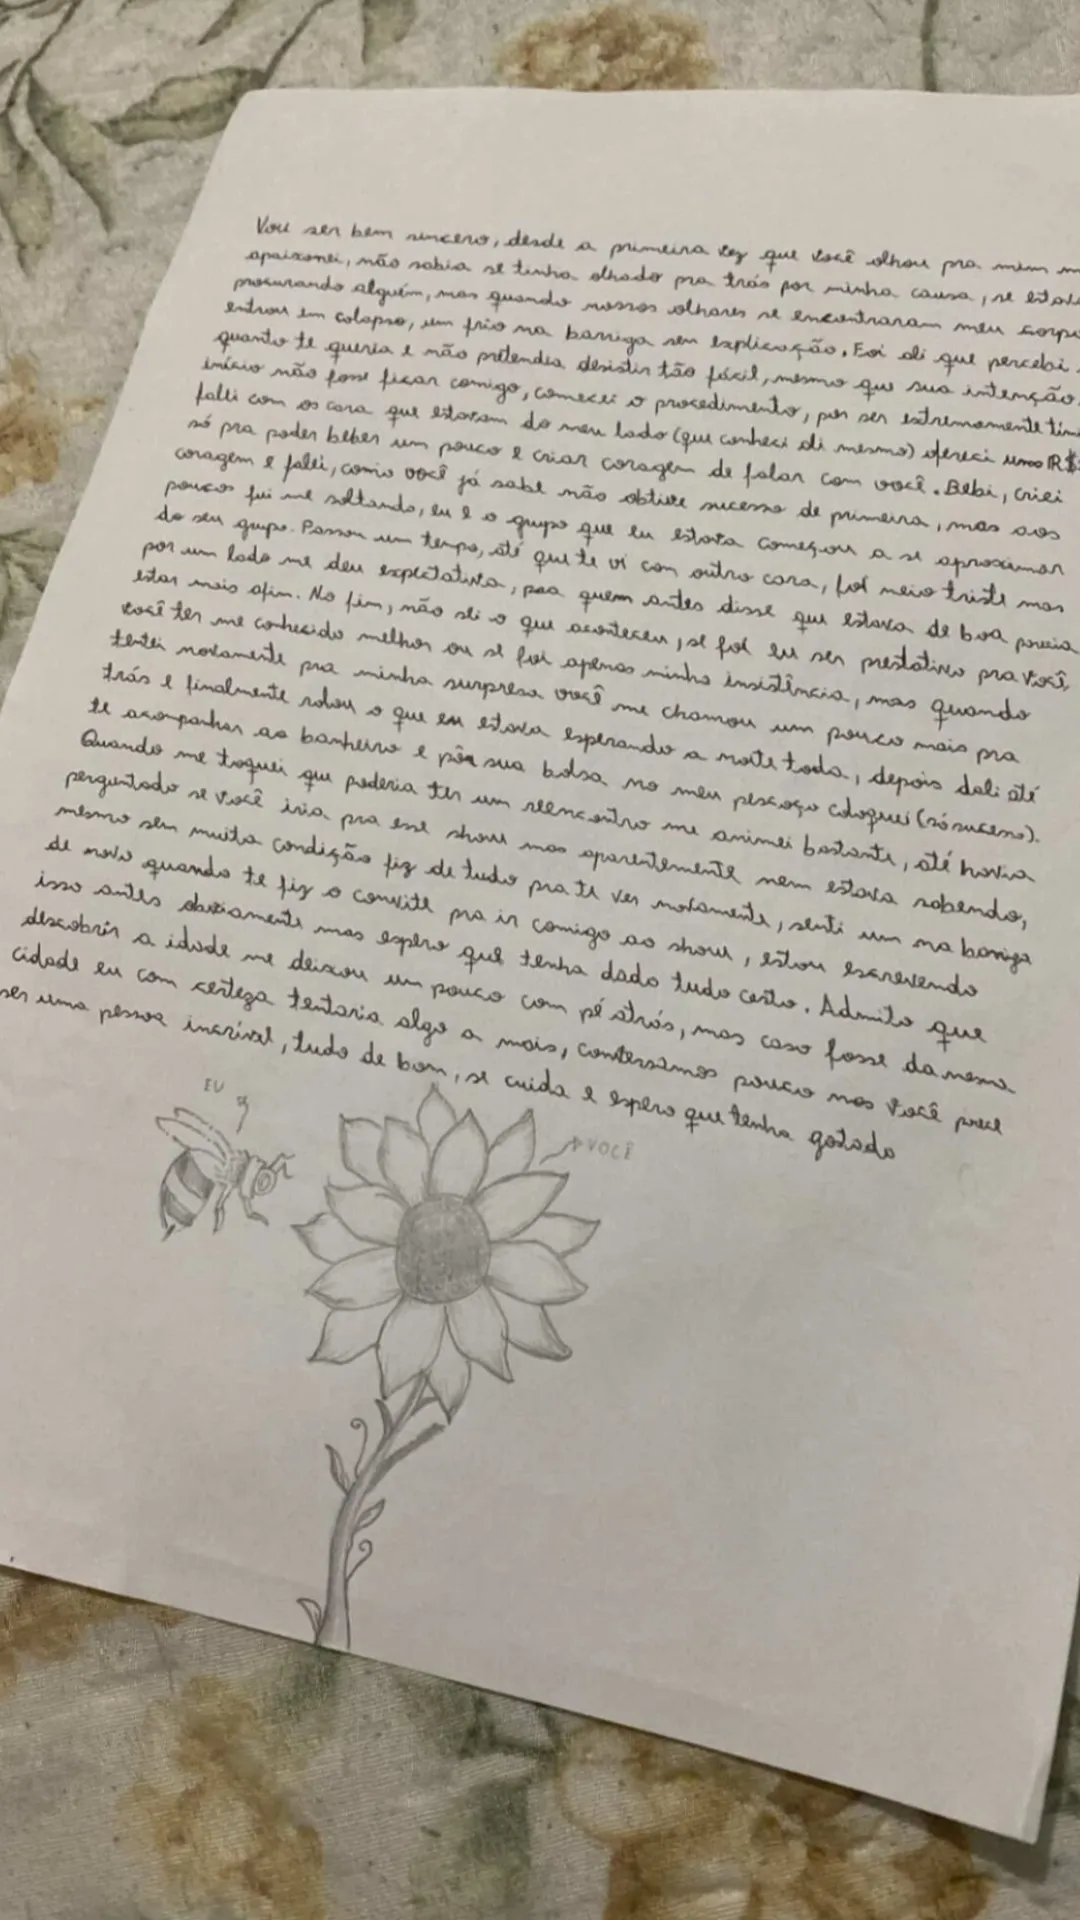 Vou ser bem sincero, desde a primeira vez que você olhou pra mim m
apaixonei, não sabia se tinha olhado pra trás por minha causa, se estav
procurando alguém, mas quando nossos olhares se encontraram meu corpo
entrou em colapso, um frio na barriga sem explicação. Foi ali que percebi
quanto te queria e não pretendia desistir tão fácil, mesmo que sua intenção
início não fosse ficar comigo, comecei o procedimento, por ser extremamente tím
falei com os cara que estavam do meu lado (que conheci ali mesmo) ofereci uns R$
só pra poder beber um pouco e criar coragem de falar com você. Bebi, criei
coragem e falei, como você já sabe não obtive sucesso de primeira, mas aos
poucos fui me soltando, eu e o grupo que eu estava começou a se aproximar
do seu grupo. Passou um tempo, até que te vi com outro cara, foi meio triste mas
por um lado me deu expectativa, pra quem antes disse que estava de boa parecia
estar mais afim. No fim, não sei o que aconteceu, se foi eu ser prestativo pra você,
você ter me conhecido melhor ou se foi apenas minha insistência, mas quando
tentei novamente pra minha surpresa você me chamou um pouco mais pra
trás e finalmente rolou o que eu estava esperando a noite toda, depois dali até
te acompanhar ao banheiro e pôr sua bolsa no meu pescoço coloquei (só sucesso).
Quando me toquei que poderia ter um reencontro me animei bastante, até havia
perguntado se você iria pra esse show mas aparentemente nem estava sabendo,
mesmo sem muita condição fiz de tudo pra te ver novamente, senti um na barriga
de novo quando te fiz o convite pra ir comigo ao show, estou escrevendo
isso antes obviamente mas espero que tenha dado tudo certo. Admito que
descobrir a idade me deixou um pouco com pé atrás, mas caso fosse da mesma
cidade eu com certeza tentaria algo a mais, conversamos pouco mas você parece
ser uma pessoa incrível, tudo de bom, se cuida e espero que tenha gostado
EU
VOCÊ